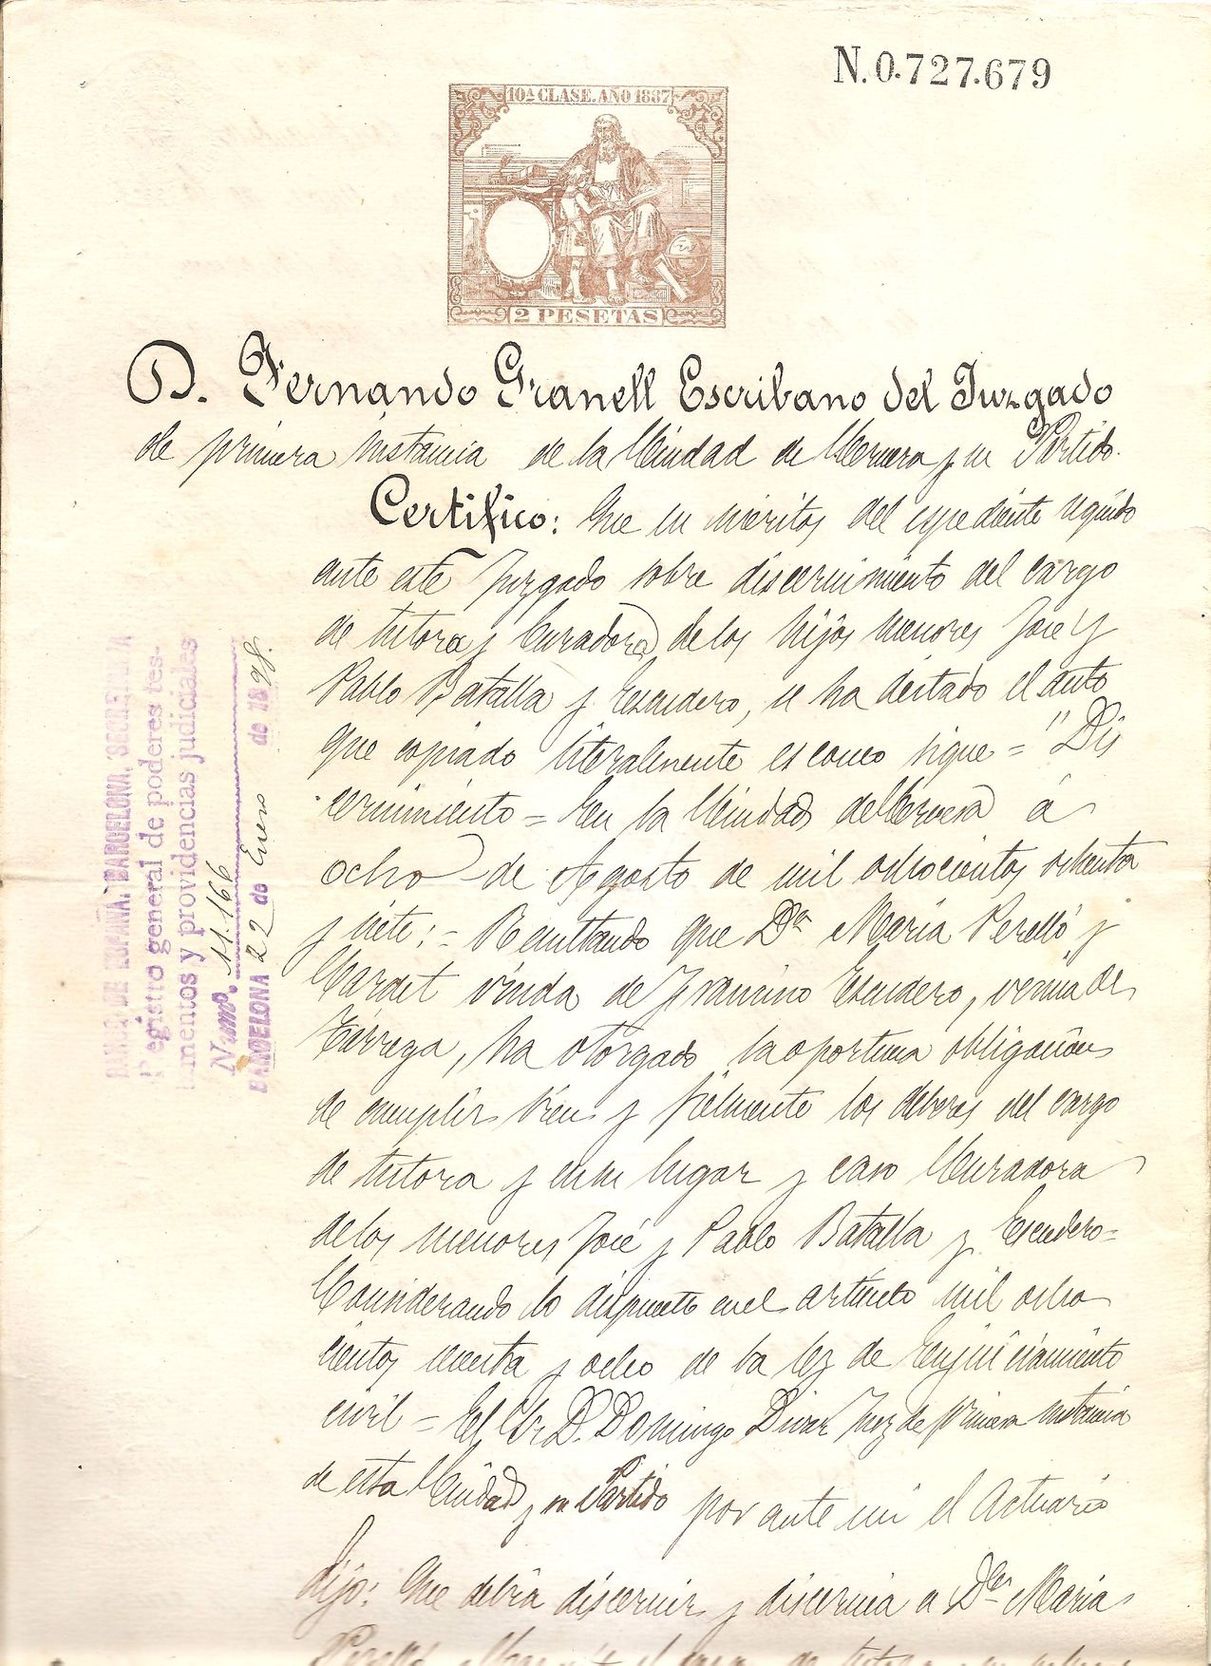 N. 0.727.679
10ª CLASE. AÑO 1887
2 PESETAS
D. Fernando Granell Escribano del Juzgado
de primera instancia de la Ciudad de Cervera y su Partido.
Certifico: Que en méritos del expediente seguido
ante este Juzgado sobre discernimiento del cargo
de tutora y Curadora de los hijos menores José y
Pablo Batalla y Escudero, se ha dictado el auto
que copiado literalmente es como sigue = "Dis
cernimiento = En la Ciudad de Cervera á
ocho de Agosto de mil ochocientos ochenta
y siete: = Resultando que Dª Maria Perelló y
viuda de Francisco Escudero, vecina de
Tárrega, ha otorgado la oportuna obligacion
de cumplir bien y fielmente los deberes del cargo
de tutora y en su lugar y caso Curadora
de los menores José y Pablo Batalla y Escudero =
Considerando lo dispuesto en el artículo mil ocho
cientos y ocho de la ley de Enjuiciamiento
civil = El Sr. D. Domingo Divar Juez de primera instancia
de esta Ciudad y su Partido por ante mi el Actuario
dijo: Que debia discernir y discernia a Dña Maria
Perelló
BANCO DE ESPAÑA, BARCELONA, SECRETARIA
Registro general de poderes tes-
tamentos y providencias judiciales
Numº. 11.166
BARCELONA 22 de Enero de 1898.